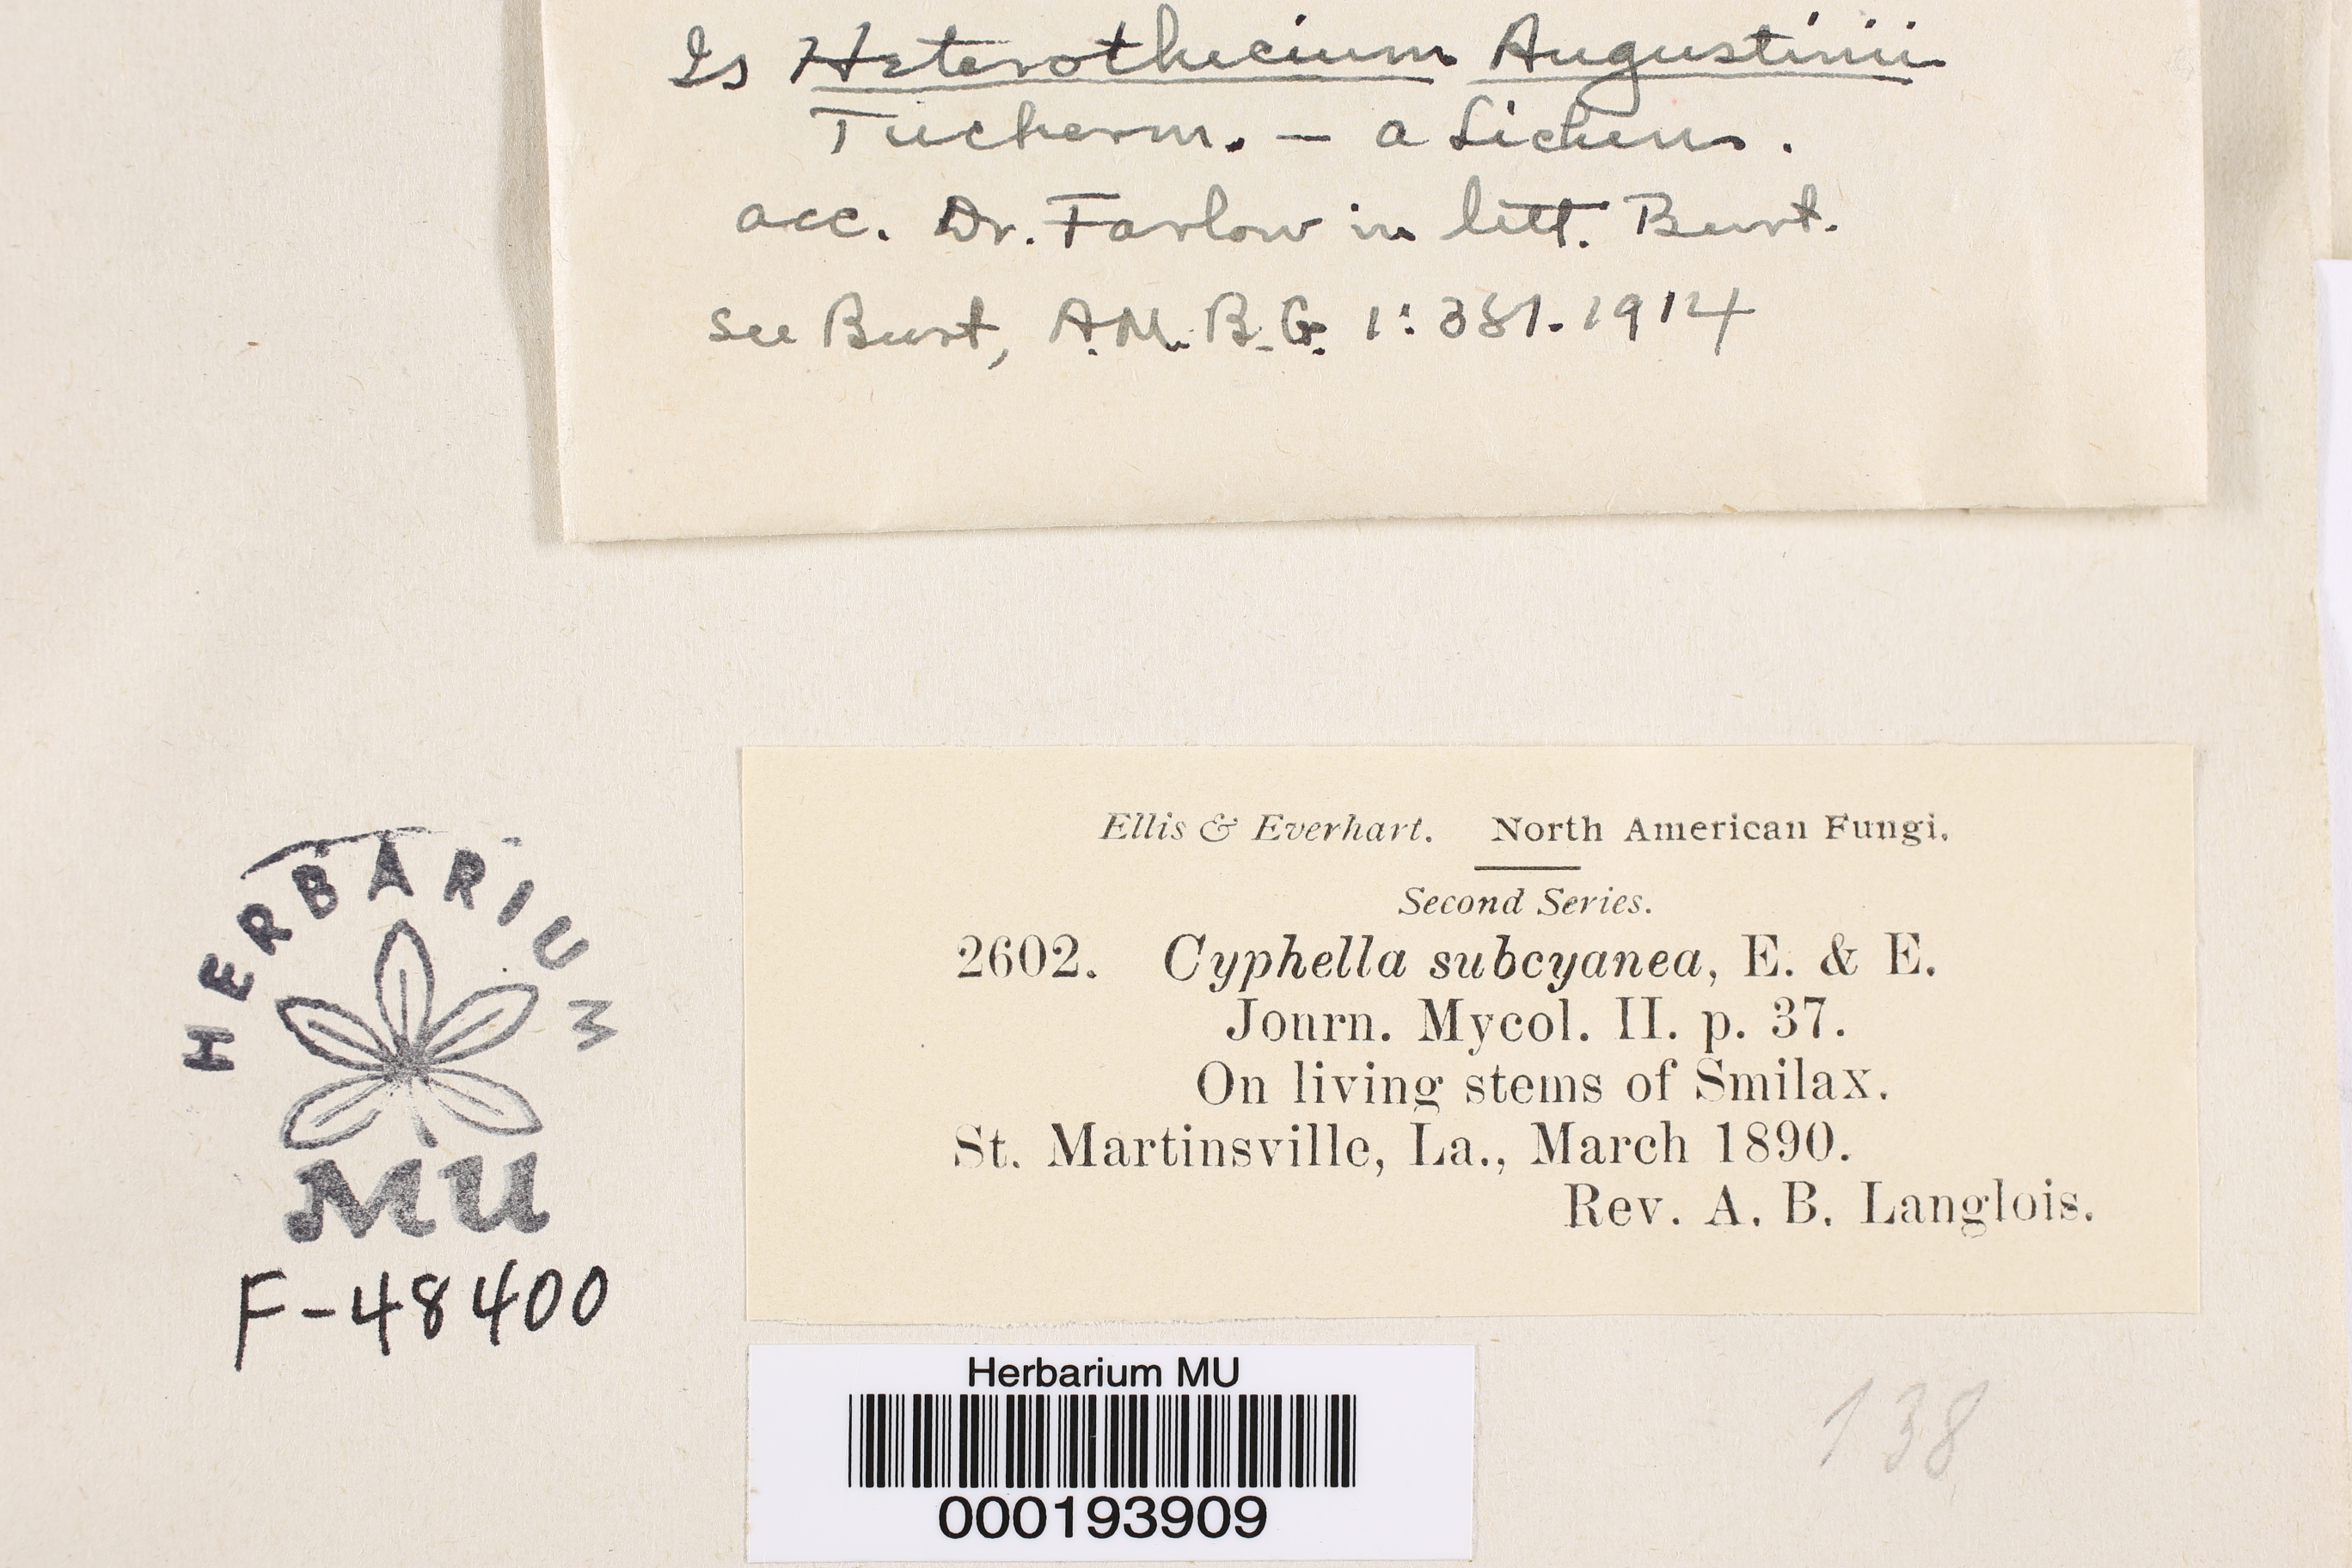 Is Heterothecium Augustinii
Tucherm. – a Lichen.
acc. Dr. Farlow in litt. Burt.
see Burt, A.M.B.G. 1: 381. 1914
Ellis & Everhart. North American Fungi.
Second Series.
2602. Cyphella subcyanea, E. & E.
Journ. Mycol. II. p. 37.
On living stems of Smilax.
St. Martinsville, La., March 1890.
Rev. A. B. Langlois.
HERBARIUM
MU
F-48400
Herbarium MU
000193909
138